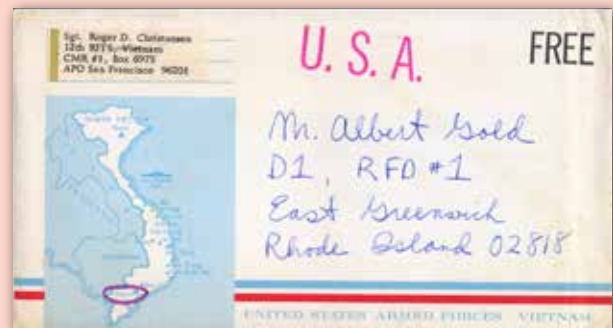 Sgt. Roger D. Christensen
12th RITS, Vietnam
CMR #1, Box 6975
APO San Francisco 96201
U. S. A.
FREE
Mr. Albert Gold
D1, RFD #1
East Greenwich
Rhode Island 02818
UNITED STATES ARMED FORCES VIETNAM